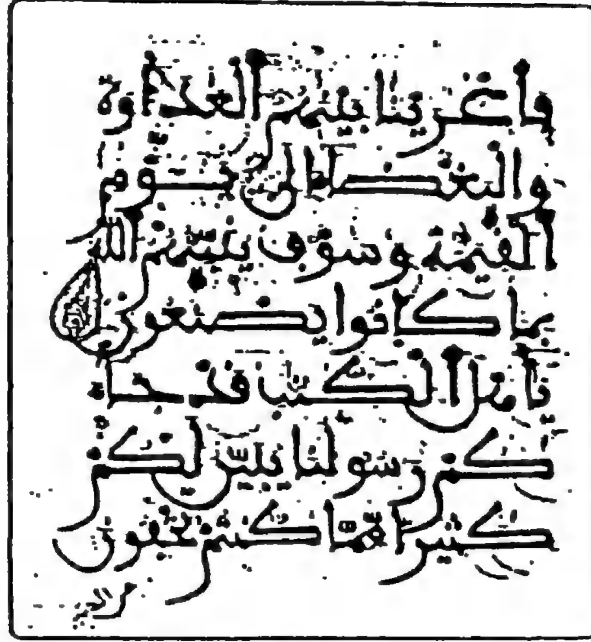 فأغرينا بينهم العداوة
والبغضاء إلى يوم
القيمة وسوف ينبئهم الله
بما كانوا يصنعون
يأهل الكتب قد جا
كم رسولنا يبين لكم
كثيرا مما كنتم تخفون
من الكتب